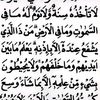 لَا تَأْخُذُهُ سِنَةٌ وَلَا نَوْمٌ لَهُ مَا فِي
السَّمَوَاتِ وَمَا فِي الْأَرْضِ مَنْ ذَا الَّذِي
يَشْفَعُ عِنْدَهُ إِلَّا بِإِذْنِهِ يَعْلَمُ مَا بَيْنَ
أَيْدِيهِمْ وَمَا خَلْفَهُمْ وَلَا يُحِيطُونَ
بِشَيْءٍ مِنْ عِلْمِهِ إِلَّا بِمَا شَاءَ وَسِعَ